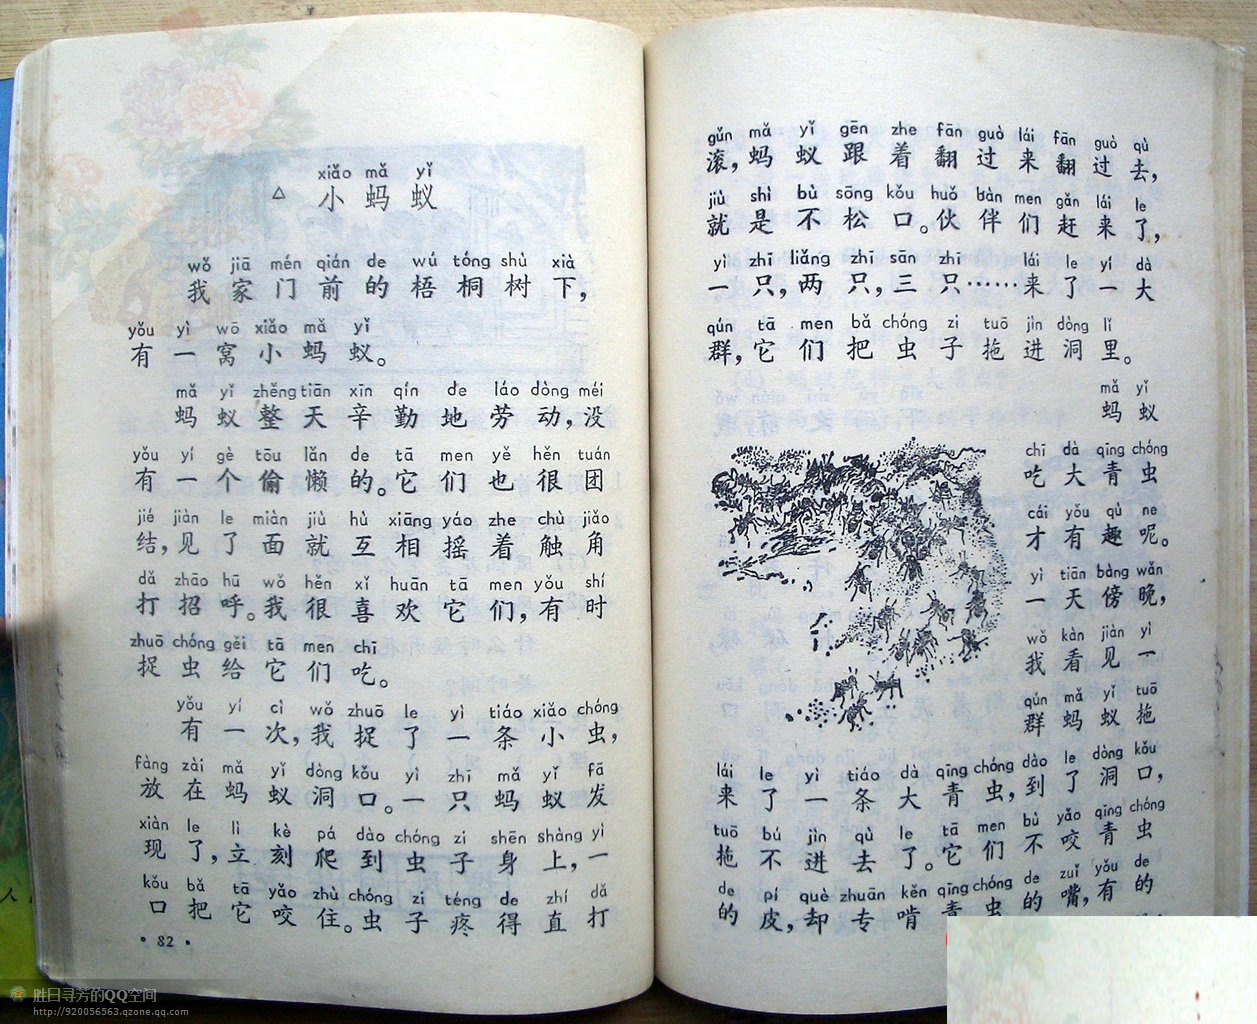 xiǎo mǎ yǐ
△ 小蚂蚁
wǒ jiā mén qián de wú tóng shù xià
我家门前的梧桐树下，
yǒu yì wō xiǎo mǎ yǐ
有一窝小蚂蚁。
mǎ yǐ zhěng tiān xīn qín de láo dòng méi
蚂蚁整天辛勤地劳动，没
yǒu yí gè tōu lǎn de tā men yě hěn tuán
有一个偷懒的。它们也很团
jié jiàn le miàn jiù hù xiāng yáo zhe chù jiǎo
结，见了面就互相摇着触角
dǎ zhāo hū wǒ hěn xǐ huān tā men yǒu shí
打招呼。我很喜欢它们，有时
zhuō chóng gěi tā men chī
捉虫给它们吃。
yǒu yí cì wǒ zhuō le yì tiáo xiǎo chóng
有一次，我捉了一条小虫，
fàng zài mǎ yǐ dòng kǒu yì zhī mǎ yǐ fā
放在蚂蚁洞口。一只蚂蚁发
xiàn le lì kè pá dào chóng zi shēn shàng yì
现了，立刻爬到虫子身上，一
kǒu bǎ tā yǎo zhù chóng zi téng de zhí dǎ
口把它咬住。虫子疼得直打
• 82 •
gǔn mǎ yǐ gēn zhe fān guò lái fān guò qù
滚，蚂蚁跟着翻过来翻过去，
jiù shì bù sōng kǒu huǒ bàn men gǎn lái le
就是不松口。伙伴们赶来了，
yì zhī liǎng zhī sān zhī lái le yí dà
一只，两只，三只……来了一大
qún tā men bǎ chóng zi tuō jìn dòng lǐ
群，它们把虫子拖进洞里。
mǎ yǐ
蚂蚁
chī dà qīng chóng
吃大青虫
cái yǒu qù ne
才有趣呢。
yì tiān bàng wǎn
一天傍晚，
wǒ kàn jiàn yì
我看见一
qún mǎ yǐ tuō
群蚂蚁拖
lái le yì tiáo dà qīng chóng dào le dòng kǒu
来了一条大青虫，到了洞口，
tuō bú jìn qù le tā men bù yǎo qīng chóng
拖不进去了。它们不咬青虫
de pí què zhuān kěn qīng chóng de zuǐ yǒu de
的皮，却专啃青虫的嘴，有的
胜日寻芳的QQ空间
http://920056563.qzone.qq.com